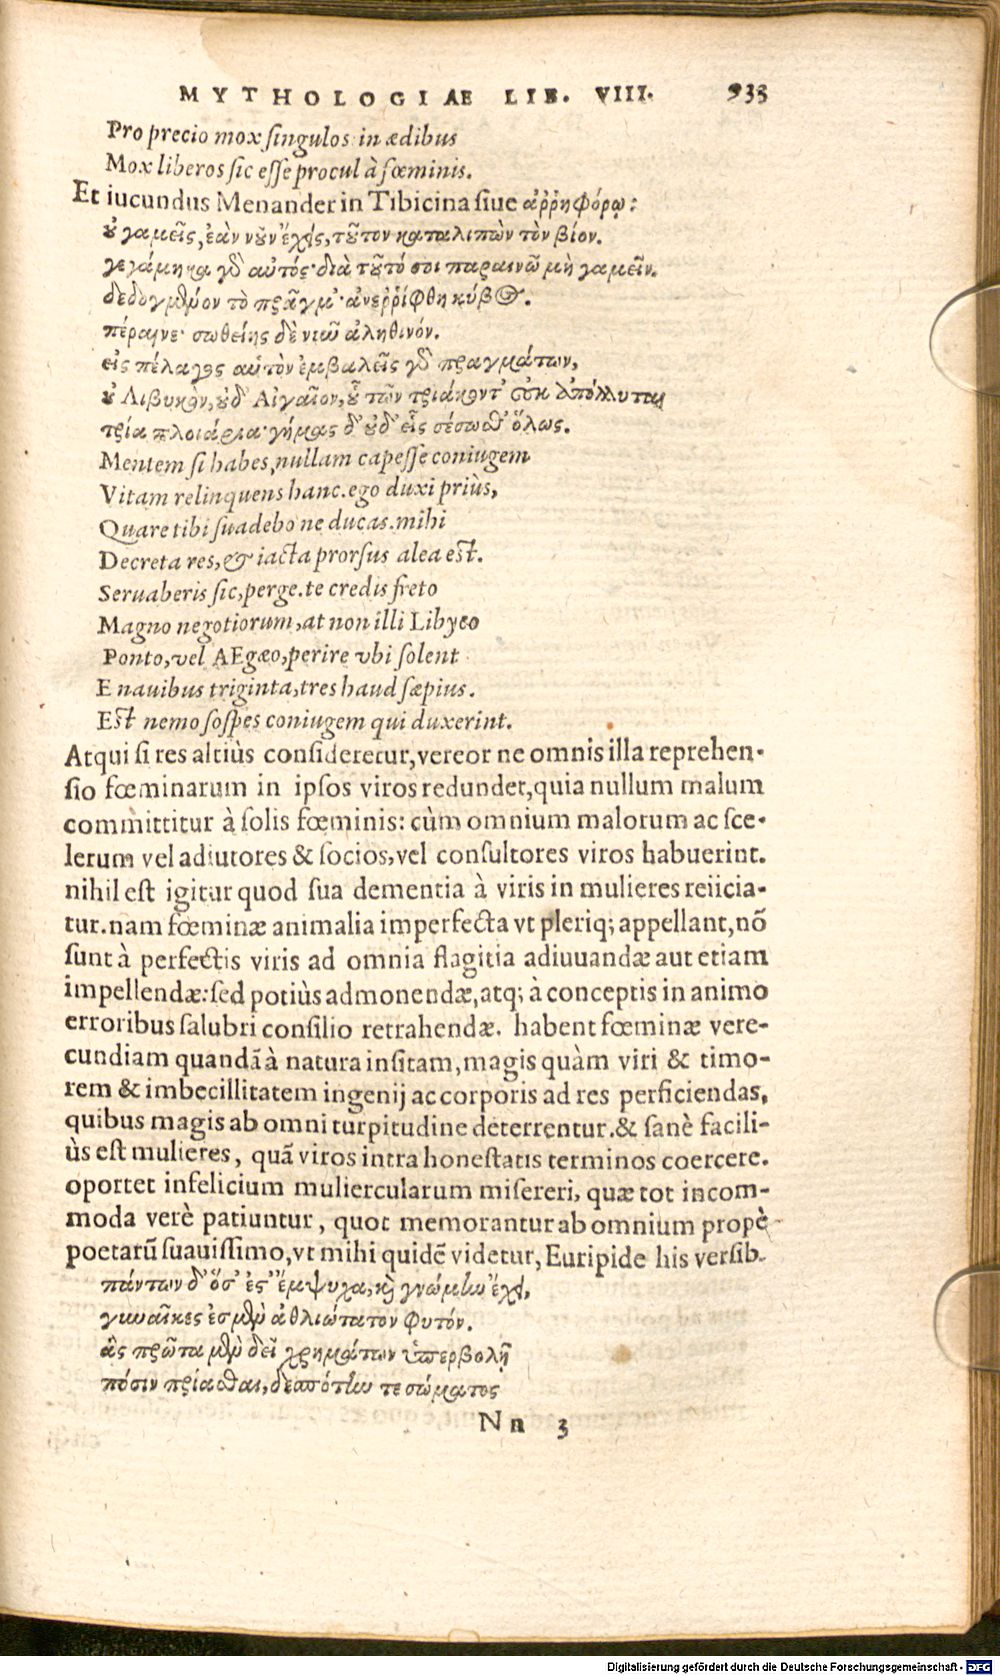 MYTHOLOGIAE LIB. VIII. 933
Pro precio mox singulos in ædibus
Mox liberos sic esse procul à fœminis.
Et iucundus Menander in Tibicina siue ἀῤῥηφόρῳ:
οὐ γαμεῖς, ἐὰν νοῦν ἔχῃς, τοῦτον καταλιπὼν τὸν βίον.
γεγάμηκα γὰρ αὐτός· διὰ τοῦτό σοι παραινῶ μὴ γαμεῖν.
δεδογμένον τὸ πρᾶγμ'· ἀνεῤῥίφθη κύβος.
πέραινε· σωθείης δὲ νῦν ἀληθινόν.
εἰς πέλαγος αὑτὸν ἐμβαλεῖς γὰρ πραγμάτων,
οὐ Λιβυκὸν, οὐδ' Αἰγαῖον, οὗ τῶν τριάκοντ' οὐκ ἀπόλλυται
τρία πλοιάρια· γήμας δ' οὐδ' εἷς σέσωσθ' ὅλως.
Mentem si habes, nullam capesse coniugem
Vitam relinquens hanc. ego duxi priùs,
Quare tibi suadebo ne ducas. mihi
Decreta res, & iacta prorsus alea est.
Seruaberis sic, perge. te credis freto
Magno negotiorum, at non illi Libyco
Ponto, vel AEgæo, perire vbi solent
E nauibus triginta, tres haud sæpius.
Est nemo sospes coniugem qui duxerint.
Atqui si res altiùs consideretur, vereor ne omnis illa reprehen-
sio fœminarum in ipsos viros redundet, quia nullum malum
committitur à solis fœminis: cùm omnium malorum ac sce-
lerum vel adiutores & socios, vel consultores viros habuerint.
nihil est igitur quod sua dementia à viris in mulieres reiicia-
tur. nam fœminæ animalia imperfecta vt pleriq; appellant, nō
sunt à perfectis viris ad omnia flagitia adiuuandæ aut etiam
impellendæ: sed potiùs admonendæ, atq; à conceptis in animo
erroribus salubri consilio retrahendæ. habent fœminæ vere-
cundiam quandā à natura insitam, magis quàm viri & timo-
rem & imbecillitatem ingenij ac corporis ad res perficiendas,
quibus magis ab omni turpitudine deterrentur. & sanè facili-
ùs est mulieres, quā viros intra honestatis terminos coercere.
oportet infelicium muliercularum misereri, quæ tot incom-
moda verè patiuntur, quot memorantur ab omnium propè
poetarū suauissimo, vt mihi quidē videtur, Euripide his versib.
πάντων δ' ὅσ' ἐς' ἔμψυχα, καὶ γνώμην ἔχει,
γυναῖκες ἐσμὲν ἀθλιώτατον φυτόν.
ἃς πρῶτα μὲν δεῖ χρημάτων ὑπερβολῇ
πόσιν πρίασθαι, δεσπότην τε σώματος
Nn 3
Digitalisierung gefördert durch die Deutsche Forschungsgemeinschaft - DFG